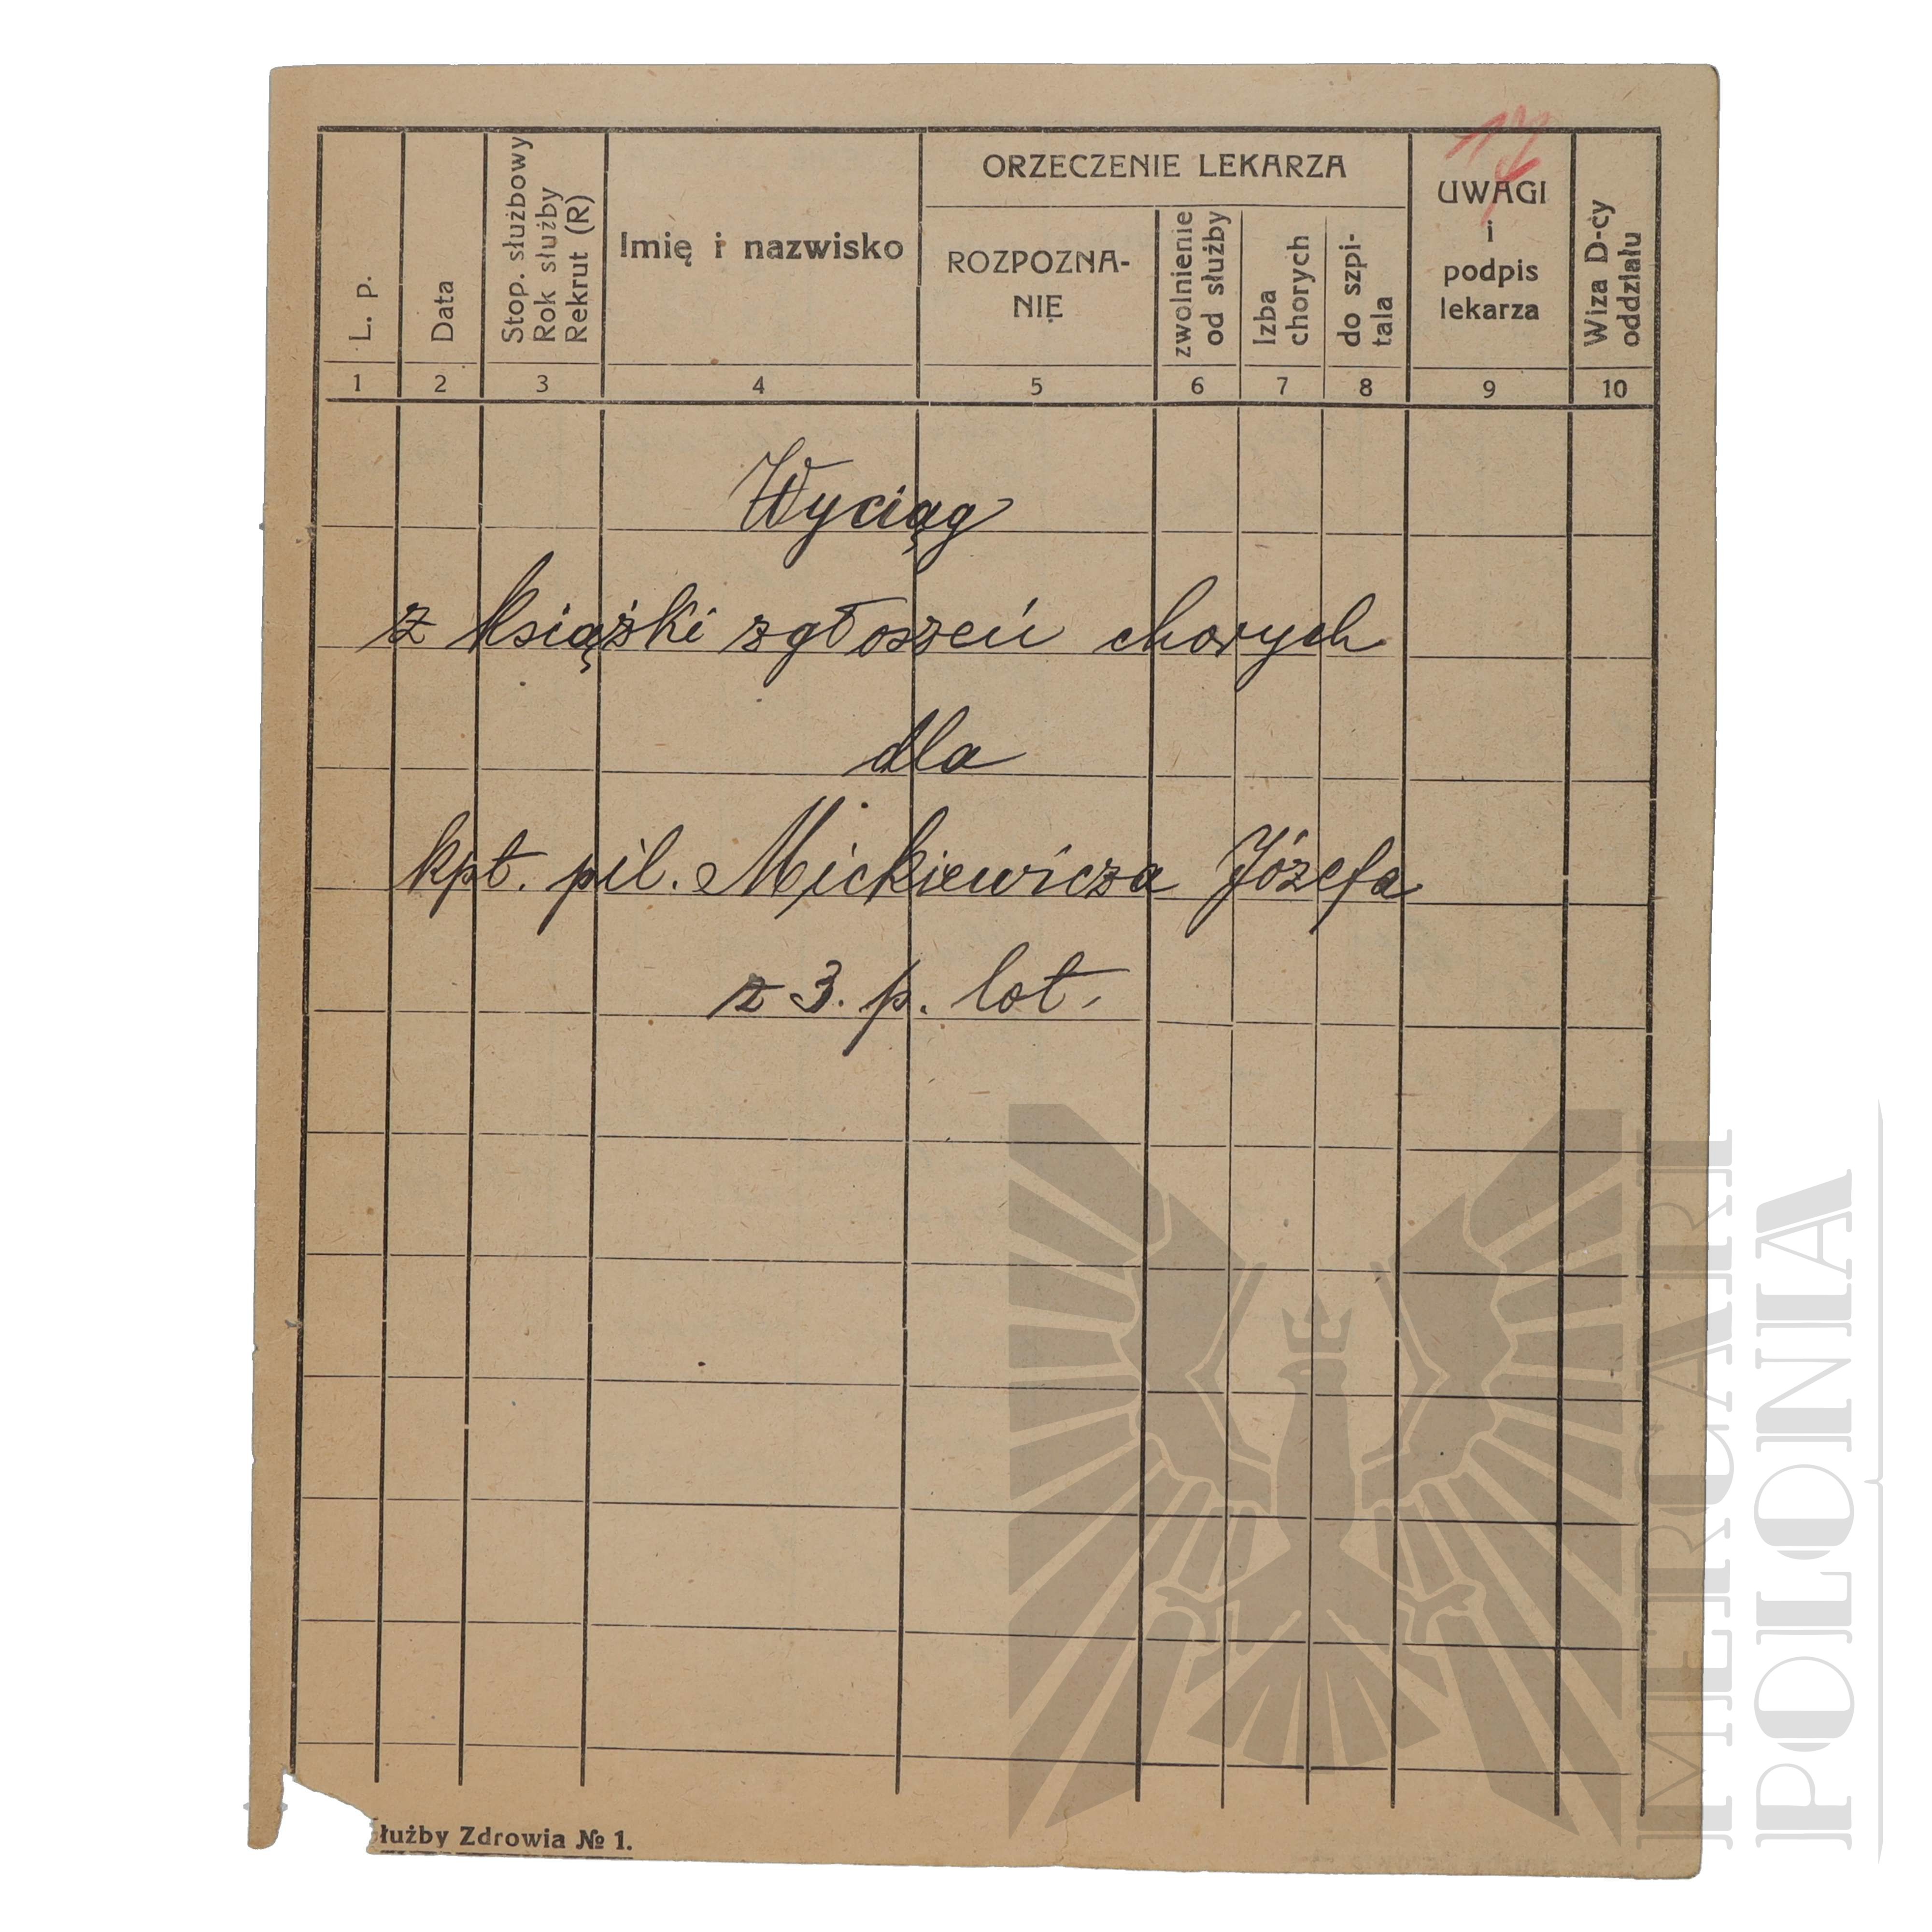 17
L. p.
Data
Stop. służbowy
Rok służby
Rekrut (R)
Imię i nazwisko
ORZECZENIE LEKARZA
ROZPOZNA-
NIE
zwolnienie
od służby
Izba
chorych
do szpi-
tala
UWAGI
i
podpis
lekarza
Wiza D-cy
oddziału
1 2 3 4 5 6 7 8 9 10
Wyciąg
z książki zgłoszeń chorych
dla
kpt. pil. Mickiewicza Józefa
z 3. p. lot.
łużby Zdrowia № 1.
MERCARI
POLONIA